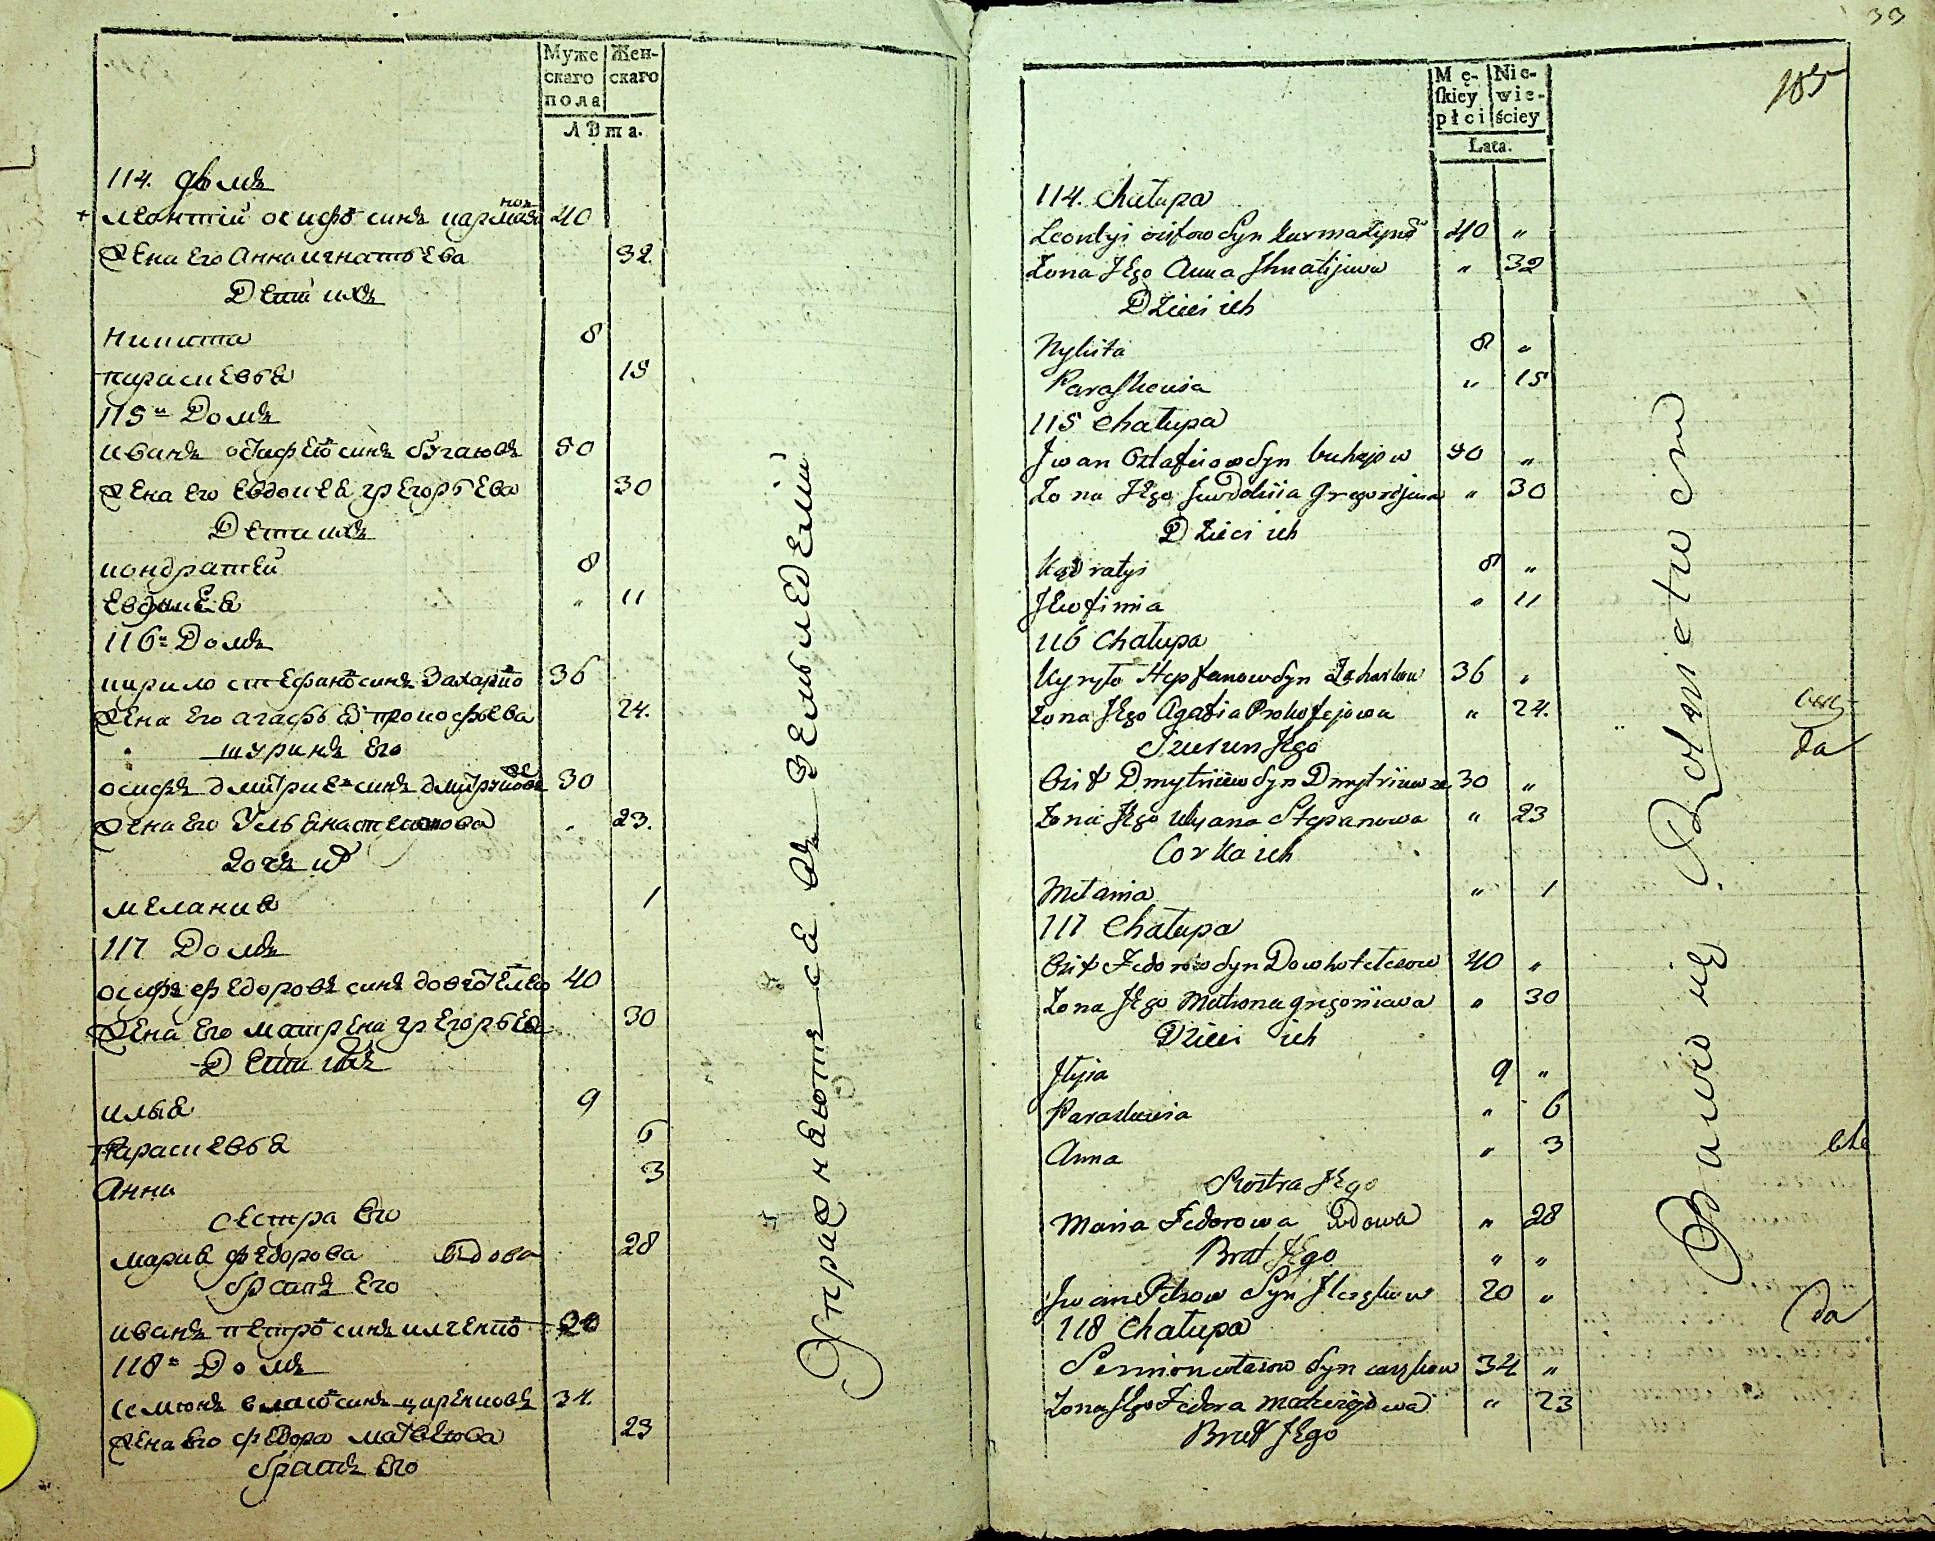 Муже
скаго
пола
Жен-
скаго
Лѣта.
114. домъ
Леонтій осифов синъ кармази
нов
40
Жена его Анна игнатьева 32
Дети ихъ
Никита 8
параскевья 15
115" Домъ
иванъ остафеев синъ бугаювъ 50
Жена его евдокея григорьева 30
Дети ихъ
кондратей 8
Евдикея " 11
116" Домъ
кирило стефанов синъ Захарко 36
Жена его агафья прокофьева 24.
шуринъ его
осифъ дмитриев синъ дмитриюв 30
Жена его Ульяна степанова " 23.
Дочь их
мелания 1
117 Домъ
осифъ федоровъ синъ довготелео 40
Жена его матрена григорьева 30
Дети ихъ
илья 9
Параскевья 6
Анна 3
сестра его
мария федорова вдова 28
братъ его
иванъ петров синъ илченко 20
118" Домъ
семионъ власов синъ царенковъ 34.
Жена его федора матвеюва 23
братъ его
Упражняются въ земледелии
33
185
Mę-
skiey
płci
Nie-
wie-
ściey
Lata.
114. Chałupa
Leontyi osifow Syn karmazyno 40 "
Zona Jego Anna Ihnatijewa " 32
Dzieci ich
Nykita 8 "
Paraskewia " 15
115 Chałupa
Jwan Ostafiiow Syn buhajow 50 "
Zona Jego Jewdokiia Gregorijewa " 30
Dzieci ich
Kądratyi 8 "
Jewfimia " 11
116 Chałupa
Kyryło Stepfanow Syn Zacharkow 36 "
Zona Jego Agafia Prokofejowa " 24.
Szurun Jego
Osif Dmytriiew Syn Dmytriiuw 30 "
Zona Jego Ulyana Stepanowa " 23
Corka ich
Melania " 1
117 Chałupa
Osif Fedorow Syn Dowhotelesow 40 "
Zona Jego Matrona grigoriiewa " 30
Dzieci ich
Jlyia 9 "
Paraskewia " 6
Anna " 3
Siostra Jego
Maria Fedorowa Wdowa " 28
Brat Jego " "
Jwan Petrow Syn Jlczękow 20 "
118 Chałupa
Semion własow Syn carękow 34 "
Zona Jego Fedora matwiejowa " 23
Brat Jego
Bawio się Rolnictwem
da
da